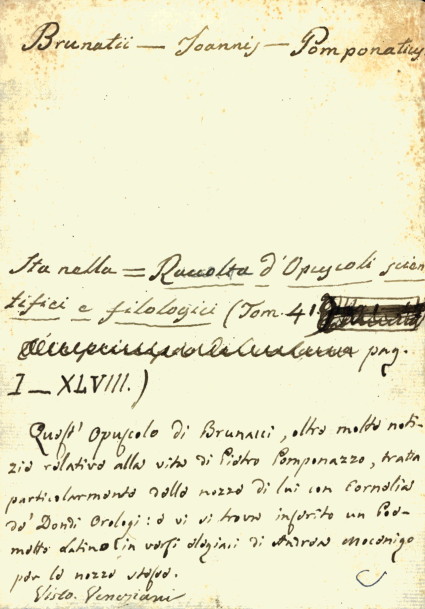 Brunatii — Joannis — Pomponatius
Sta nella = Raccolta d'Opuscoli scien
tifici e filologici (Tom. 41
pag.
I — XLVIII.)
Quest' Opuscolo di Brunacci, oltre molte noti-
zie relative alla vita di Pietro Pomponazzo, tratta
particolarmente delle nozze di lui con Cornelia
de' Dondi Orologi: e vi si trova inserito un Poe-
metto Latino in versi elegiaci di Andrea Mocenigo
per le nozze stesse.
Visto. Veneziani